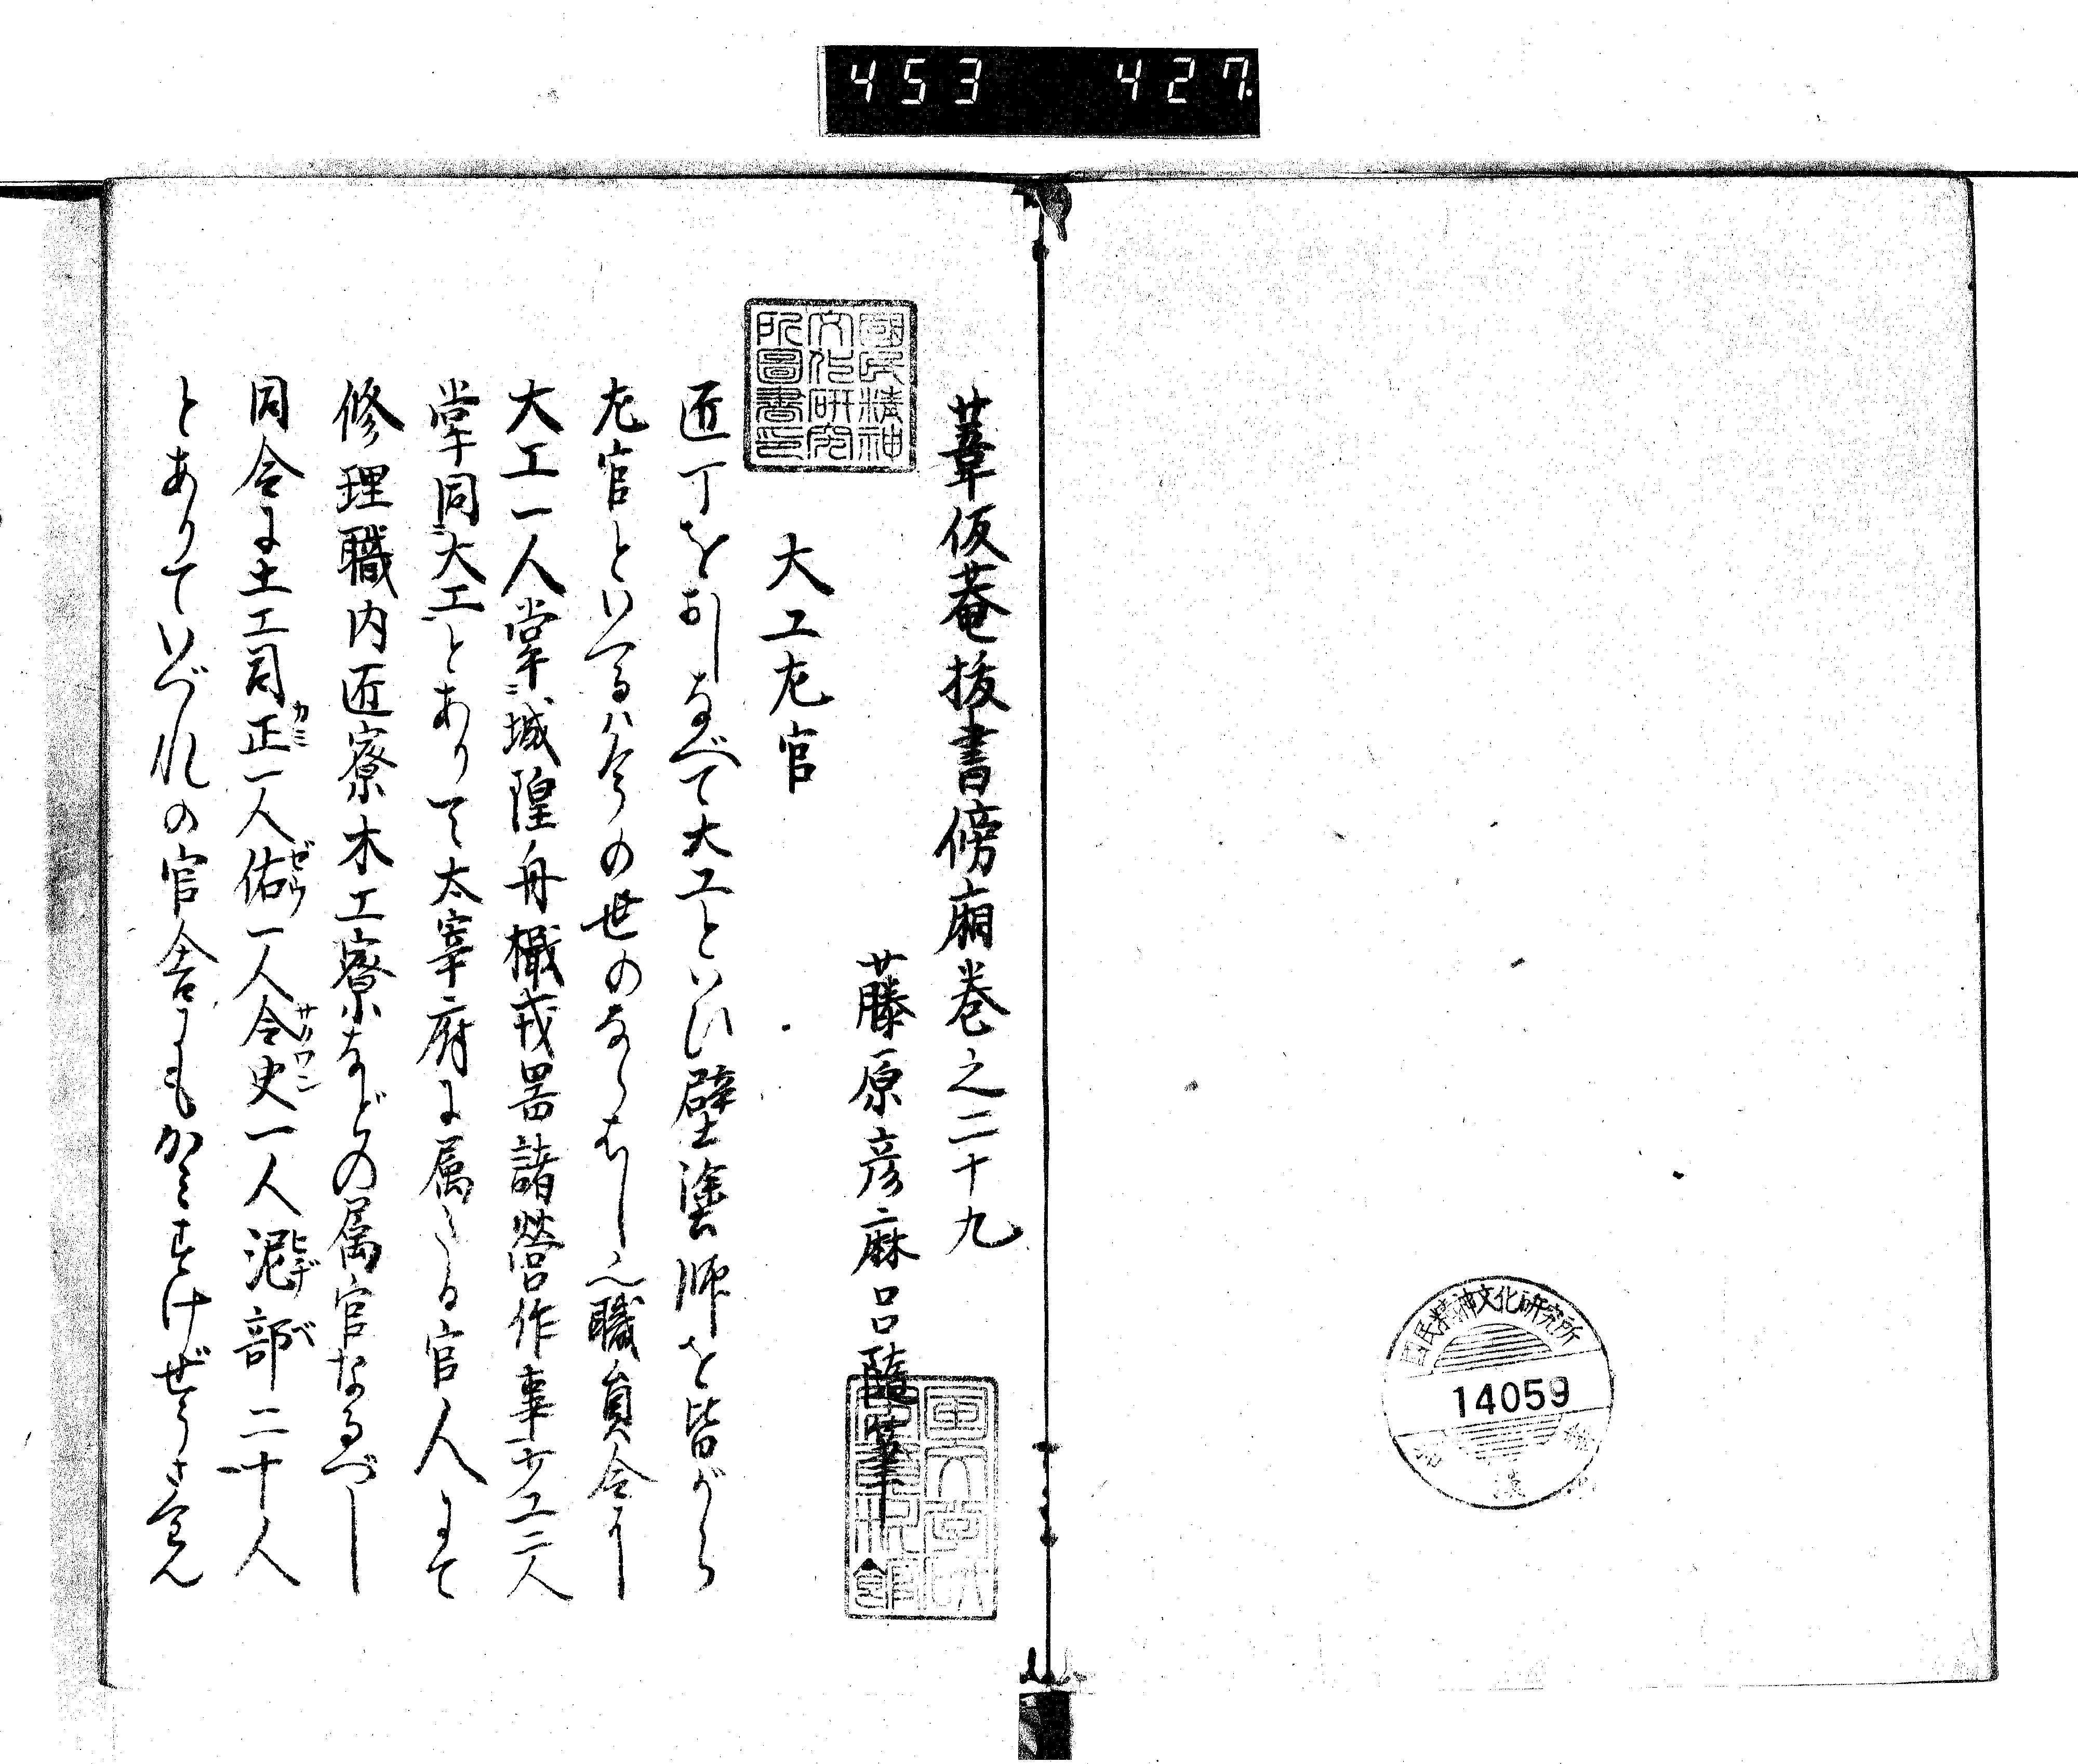 453 427.
葦仮菴抜書傍廂巻之二十九
藤原彦麻呂随筆
國民精神文化研究所圖書印
大工左官
匠丁をおしなべて大工といひ壁塗師を皆がら
左官といへるハ今の世のならはし也職員令に
大工一人掌城隍舟檝戎器諸営作事少工二人
掌同大工とありて太宰府に属たる官人にて
修理職内匠寮木工寮などの属官なるべし
同令に土工司正カミ一人佑ゼウ一人令史サクワン一人泥部ヒヂベ二十人
とありていづれの官舎にもかミすけぜうさくわん
國民精神文化研究所
14059